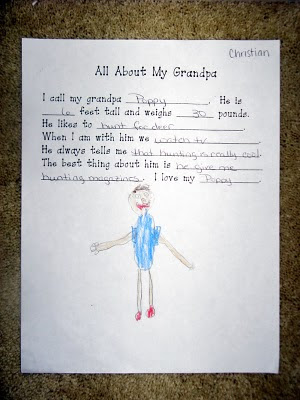 Christian
All About My Grandpa
I call my grandpa Poppy. He is
6 feet tall and weighs 30 pounds.
He likes to hunt for deer.
When I am with him we watch tv.
He always tells me that hunting is really cool.
The best thing about him is he give me
hunting magazines. I love my Poppy.